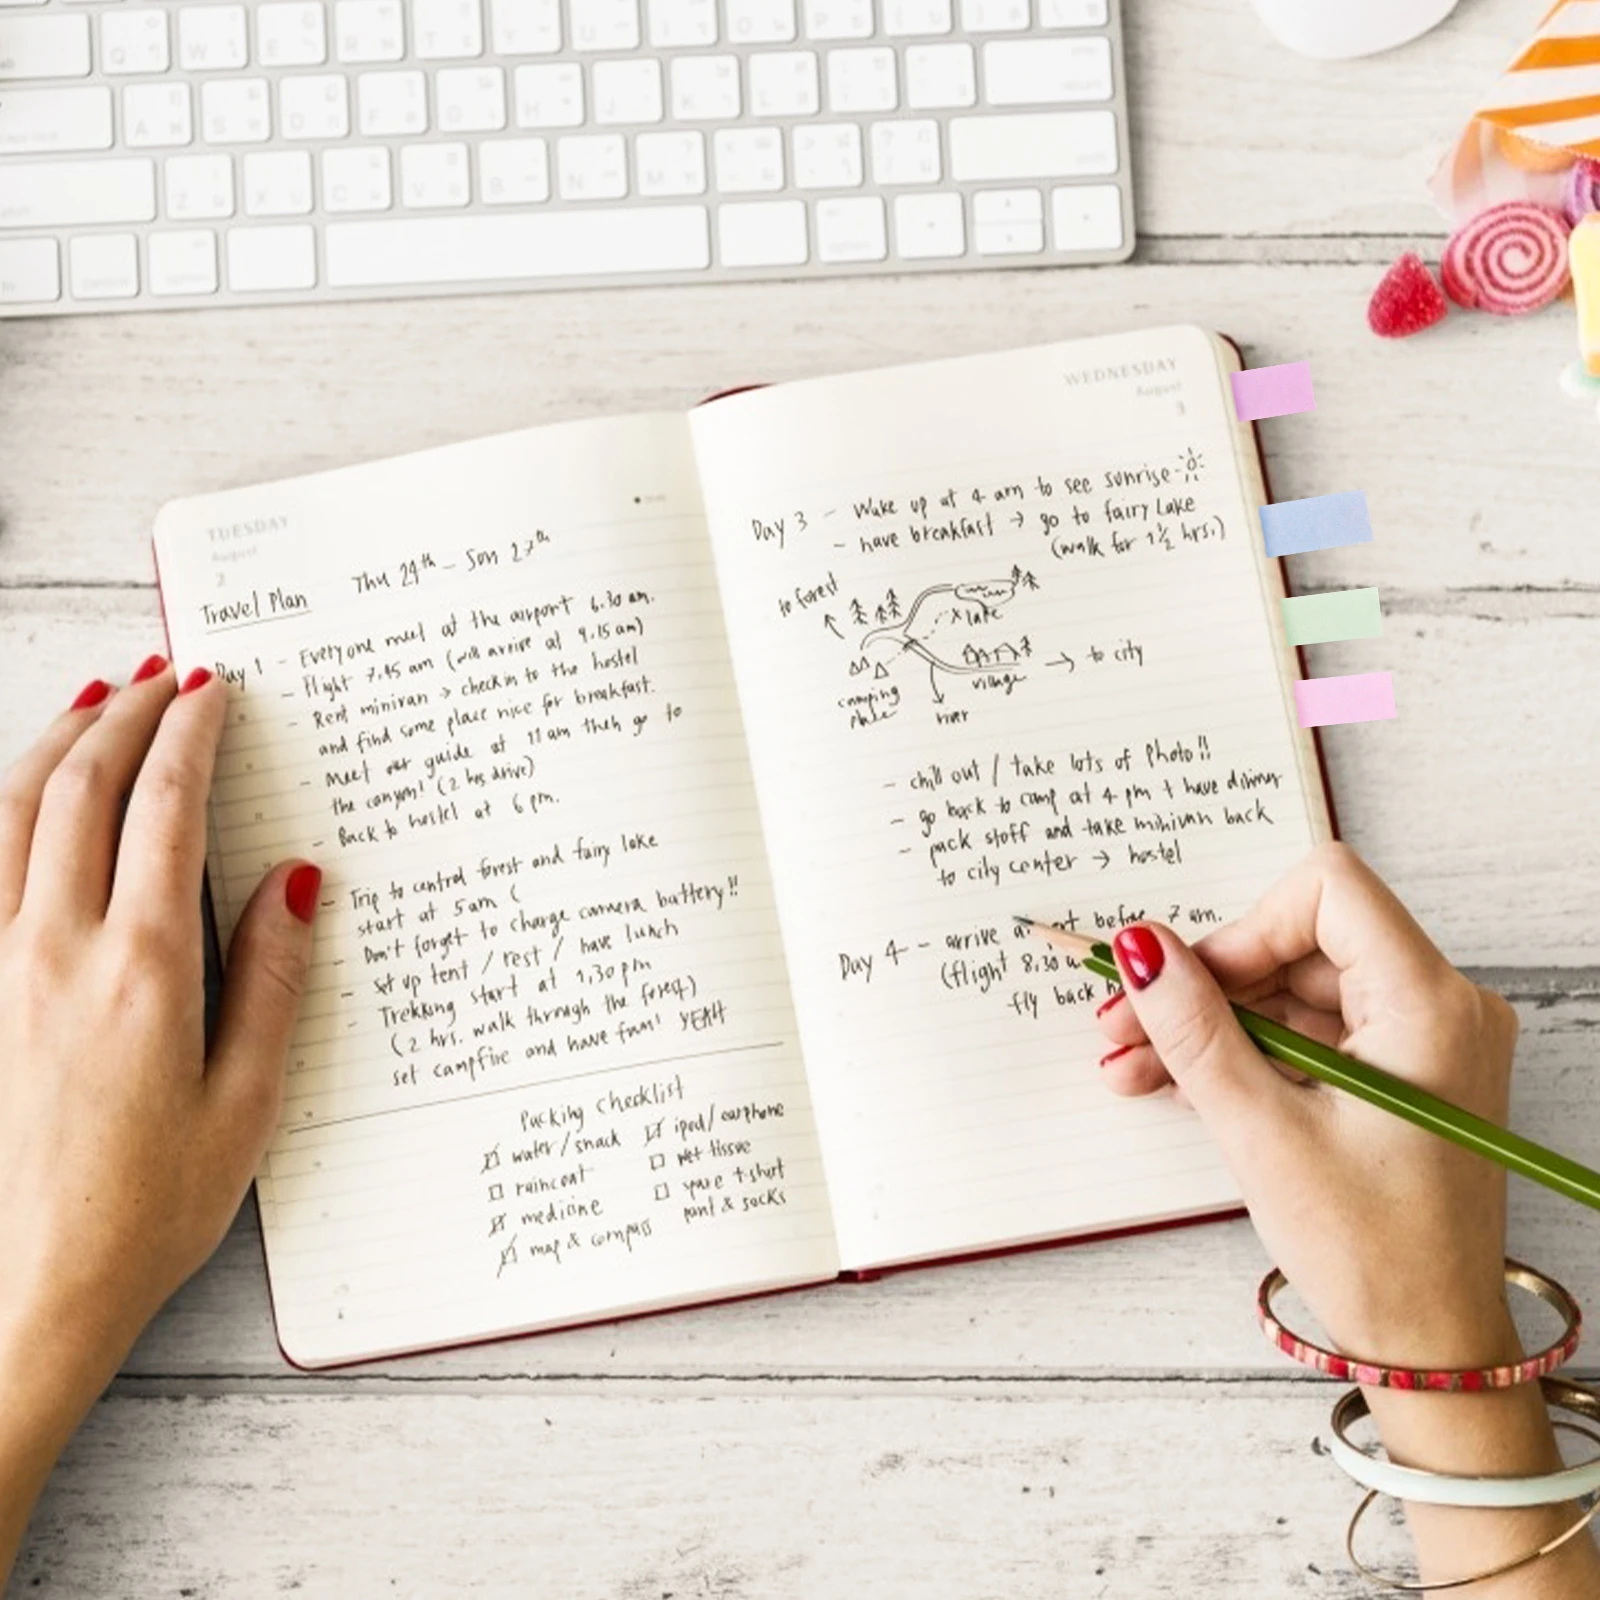 TUESDAY
August
2
Thu 24th - Son 27th
Travel Plan
Day 1 - Everyone meet at the airport 6.30 am.
- Flight 7.45 am (will arrive at 9.15 am)
- Rent minivan → check in to the hostel
and find some place nice for breakfast.
- Meet our guide at 11 am then go to
the canyon! (2 hrs drive)
- Back to hostel at 6 pm.
- Trip to central forest and fairy lake
start at 5am (
- Don't forget to charge camera battery!!
- Set up tent / rest / have lunch
- Trekking start at 1,30 pm
(2 hrs. walk through the forest)
set campfire and have fun! YEAH
Packing checklist
☑ water/snack
☐ raincoat
☑ medicine
☑ map & compass
☑ ipod/earphone
☐ wet tissue
☐ spare t-shirt
pant & socks
WEDNESDAY
August
3
Day 3 - Wake up at 4 am to see sunrise
- have breakfast → go to fairy Lake
(walk for 1½ hrs.)
to forest
x lake
→ to city
village
camping
place
river
- chill out / take lots of photo!!
- go back to camp at 4 pm + have dinner
- pack stoff and take minivan back
to city center → hostel
Day 4 - arrive before 7 am.
(flight 8.30
fly back